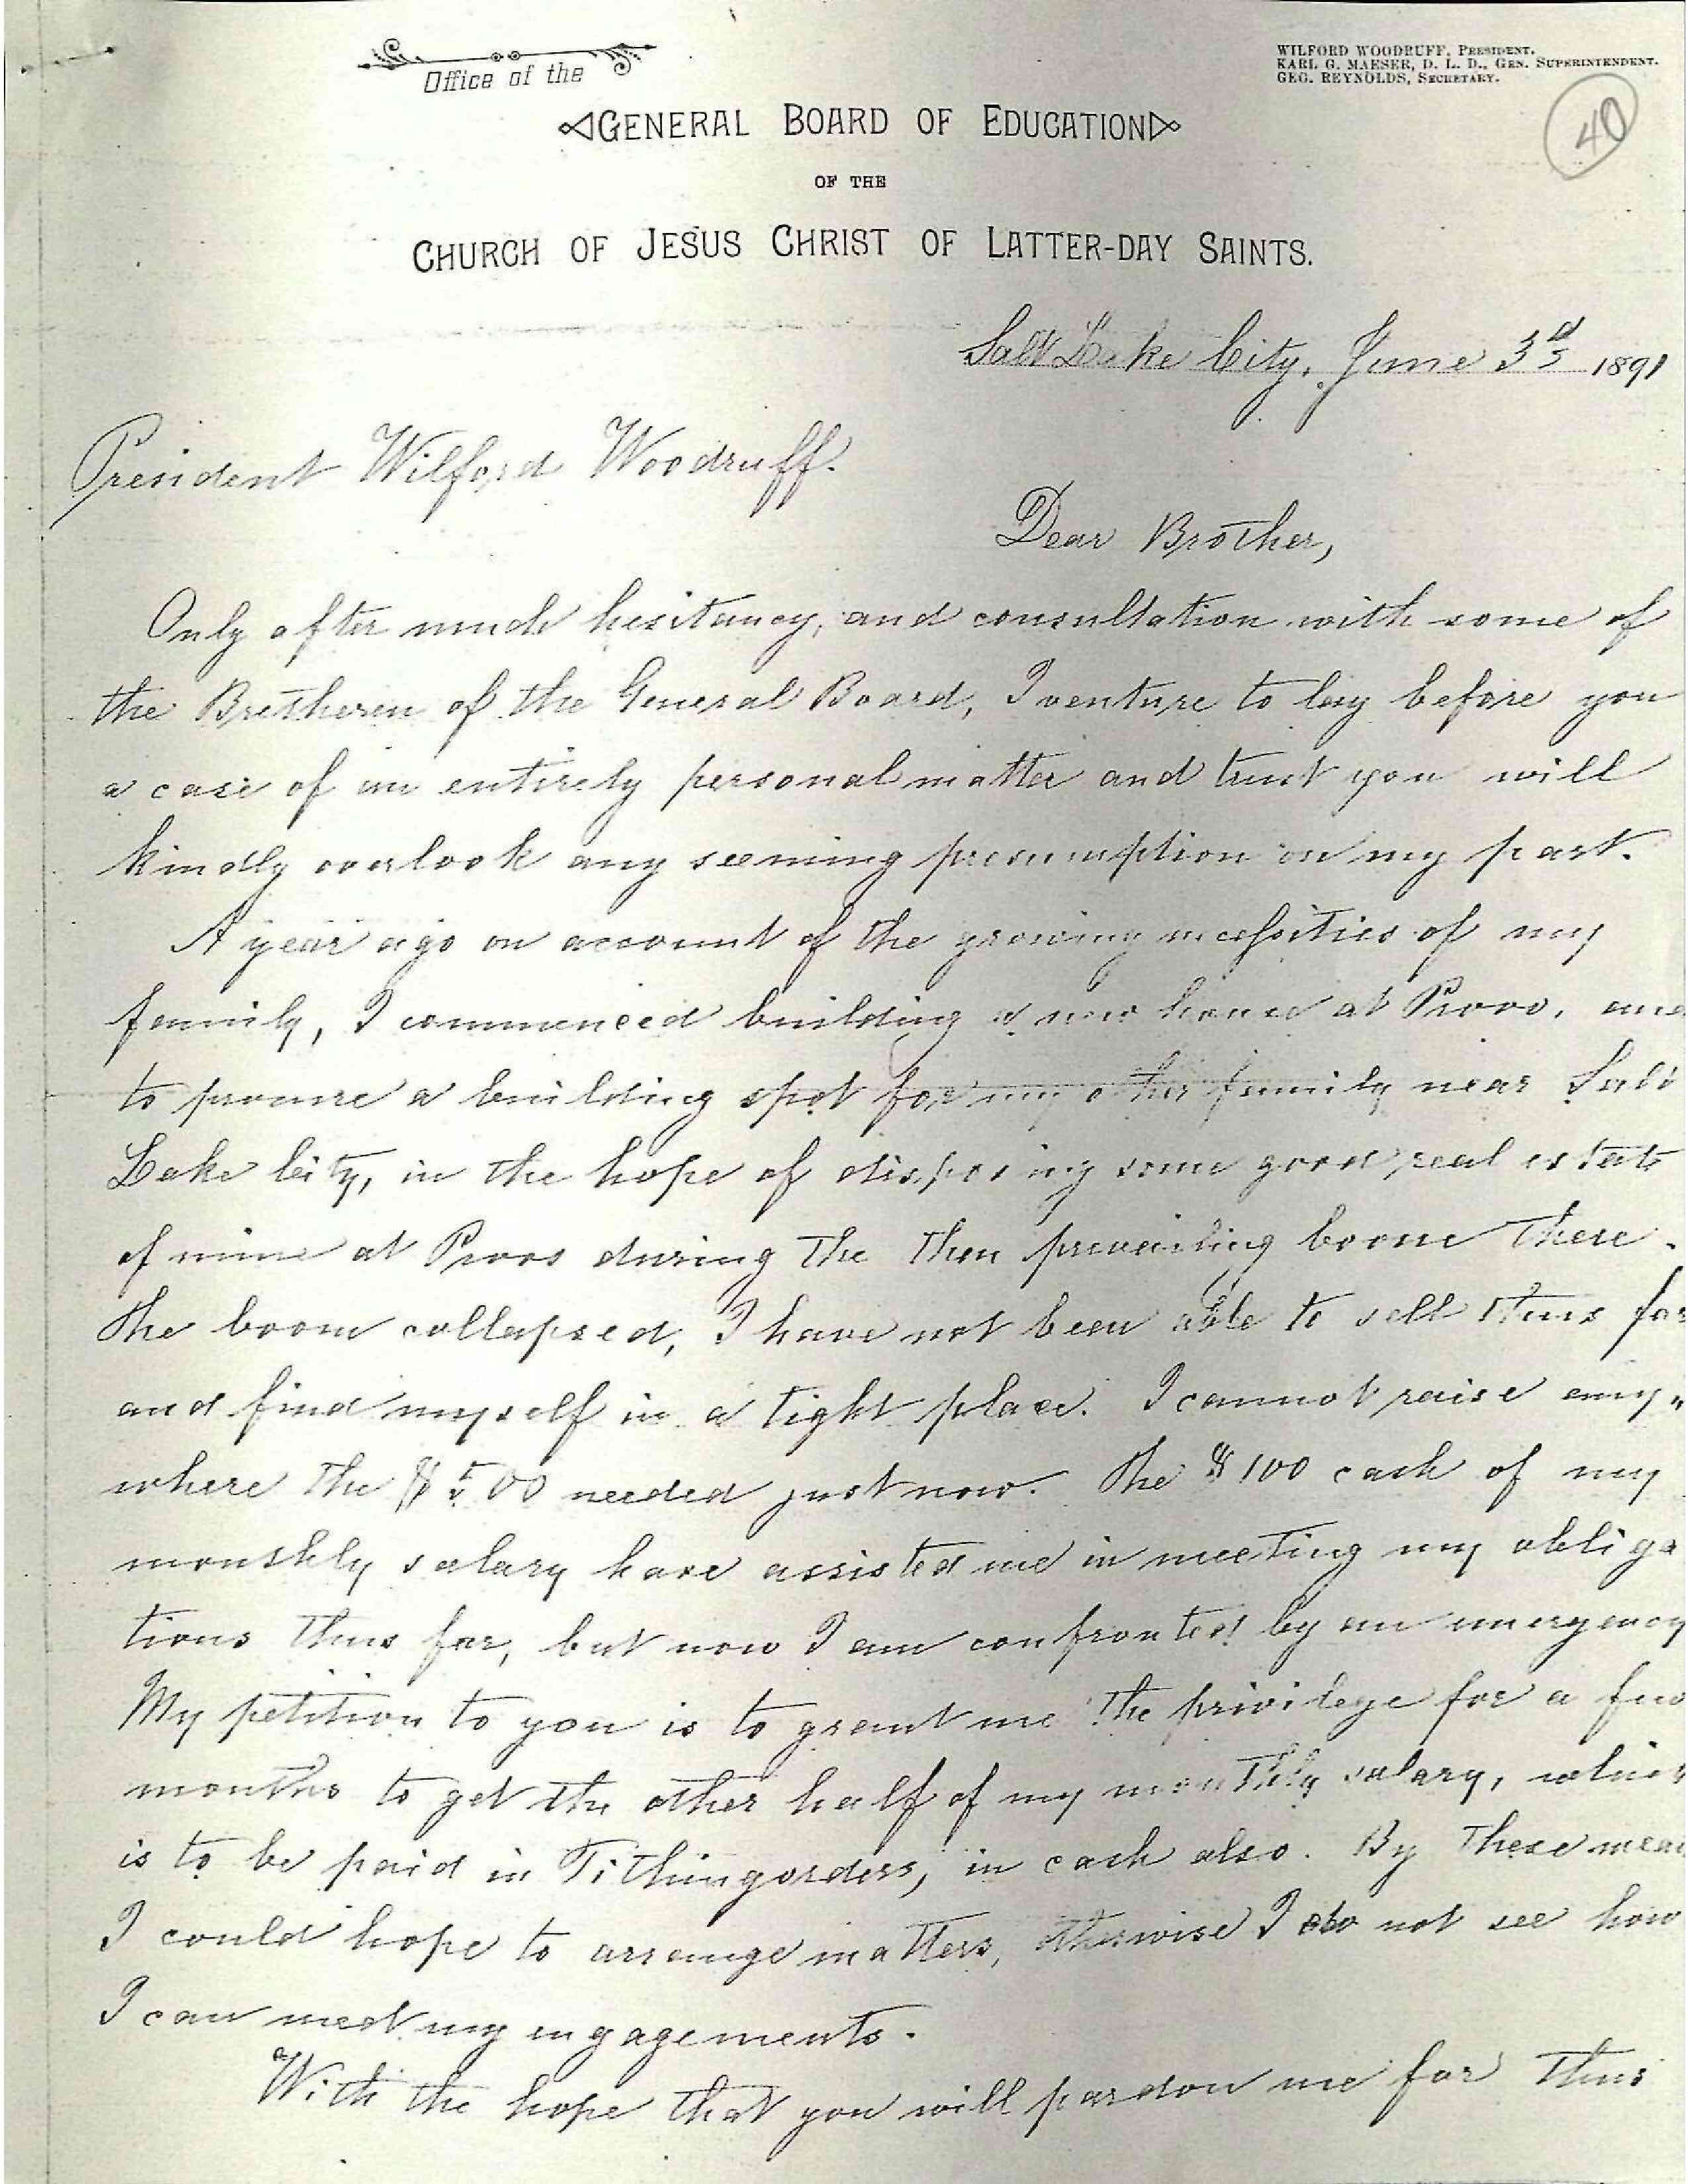 Office of the
WILFORD WOODRUFF, PRESIDENT.
KARL G. MAESER, D. L. D., GEN. SUPERINTENDENT.
GEO. REYNOLDS, SECRETARY.
40
GENERAL BOARD OF EDUCATION
OF THE
CHURCH OF JESUS CHRIST OF LATTER-DAY SAINTS.
Salt Lake City, June 3d 1891
President Wilford Woodruff.
Dear Brother,
Only after much hesitancy, and consultation with some of
the Bretheren of the General Board, I venture to lay before you
a case of an entirely personal matter and trust you will
kindly overlook any seeming presumption on my part.
A year ago on account of the growing necessities of my
family, I commenced building a new house at Provo, and
to procure a building spot for my other family near Salt
Lake City, in the hope of disposing some good real estate
of mine at Provo during the then prevailing boom there.
The boom collapsed, I have not been able to sell thus far
and find myself in a tight place. I cannot raise any"
where the $500 needed just now. The $100 cash of my
monthly salary have assisted me in meeting my obliga
tions thus far, but now I am confronted by an emergency
My petition to you is to grant me the privilege for a few
months to get the other half of my monthly salary, which
is to be paid in Tithingorders, in cash also. By these mean
I could hope to arrange matters, otherwise I do not see how
I can meet my engagements.
With the hope that you will pardon me for thus